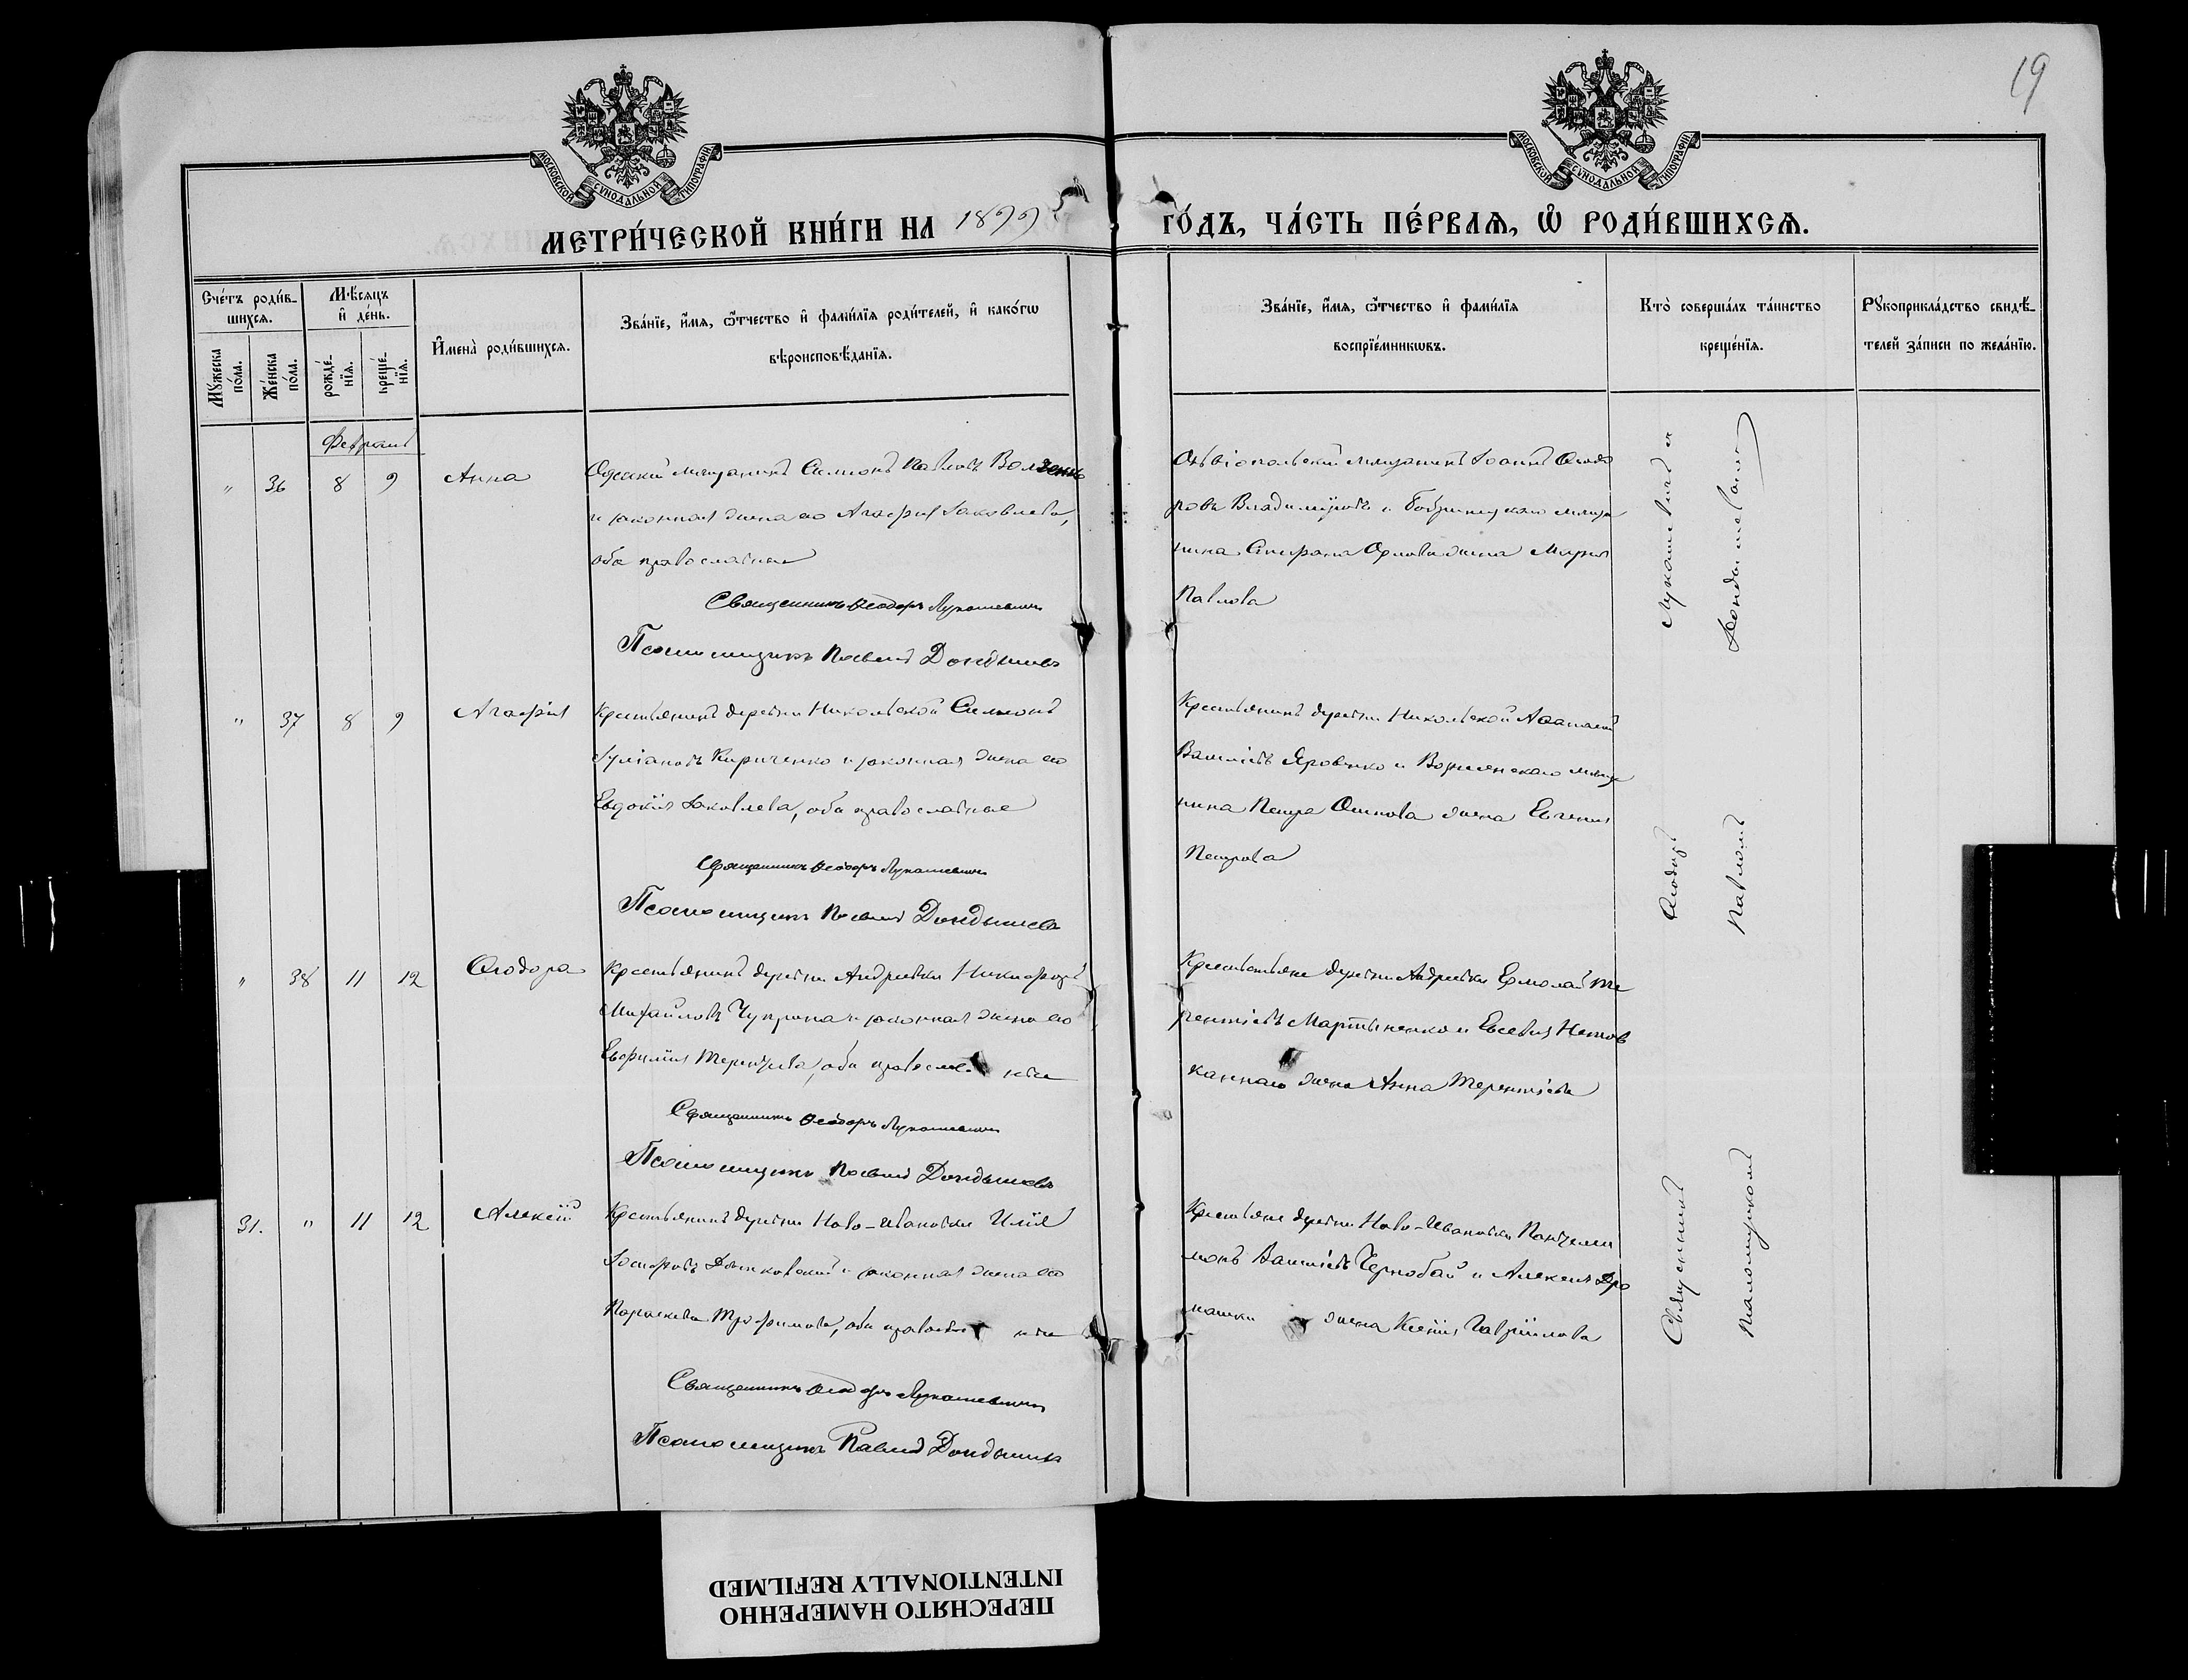 19
МОСКОВСКОЙ СѴНОДАЛЬНОЙ ТИПОГРАФІИ
МОСКОВСКОЙ СѴНОДАЛЬНОЙ ТИПОГРАФІИ
МЕТРИ́ЧЕСКОЙ КНИ́ГИ НА 1899
ГО́ДЪ, ЧА́СТЬ ПЕ́РВАѦ, Ѡ҆ РОДИ́ВШИХСѦ.
Сче́тъ роди́в-
шихсѧ.
Мꙋ́жеска по́ла.
Же́нска по́ла.
Мѣ́сѧцъ
и҆ де́нь.
рожде́-
нїѧ.
креще́-
нїѧ.
И҆мена̀ роди́вшихсѧ.
Зва́нїе, и҆́мѧ, ѻ҆́тчество и҆ фамі́лїѧ роди́телей, и҆ како́гѡ
вѣроисповѣ́данїѧ.
Зва́нїе, и҆́мѧ, ѻ҆́тчество и҆ фамі́лїѧ
воспрїе́мникѡвъ.
Кто̀ соверша́лъ та́инство
креще́нїѧ.
Рꙋкоприкла́дство свидѣ́-
телей за́писи по жела́нїю.
Февраль
" 36 8 9 Анна
Одесскій мещанинъ Симеонъ Павловъ
и законная жена его Агафія Іаковлева,
оба православные
Священникъ Ѳеодоръ Лукашевичъ
Псаломщикъ Павелъ Дондышевъ
Ольвіопольскій мещанинъ Іоаннъ Ѳеодо
ровъ Владимировъ и Бобринецкаго меща
нина Стефана Орлова жена Марія
Павлова
" 37 8 9 Агафія
Крестьянинъ деревни Никольской Симеонъ
Іуліановъ Кириченко и законная жена его
Евдокія Іаковлева, оба православные
Священникъ Ѳеодоръ Лукашевичъ
Псаломщикъ Павелъ Дондышевъ
Крестьянинъ деревни Никольской Аѳанасій
Василіевъ Яровенко и Вознесенскаго меща
нина Петра Осипова жена Евгенія
Петрова
" 38 11 12 Ѳеодора
Крестьянинъ деревни Андреевки Никифоръ
Михайловъ Чуприна и законная жена его
Евфимія Терентіева, оба правосла ные
Священникъ Ѳеодоръ Лукашевичъ
Псаломщикъ Павелъ Дондышевъ
Крестьяне деревни Андреевки Ермолай Те
рентіевъ Мартыненко и Евсевія
жена Анна Терентіева
31. " 11 12 Алексій
Крестьянинъ деревни Ново-Ивановки Илія
Іосифовъ и законная жена его
Параскева Трофимова, оба православ ные
Священникъ Ѳеодоръ Лукашевичъ
Псаломщикъ Павелъ Дондышевъ
Крестьяне деревни Ново-Ивановки Пантелеи
монъ Василіевъ Чернобай и Алексія
жена Ксенія Гавріилова
Священникъ Ѳеодоръ Лукашевичъ съ
Псаломщикомъ Павломъ Дондышевымъ
ПЕРЕСНЯТО НАМЕРЕННО
INTENTIONALLY REFILMED